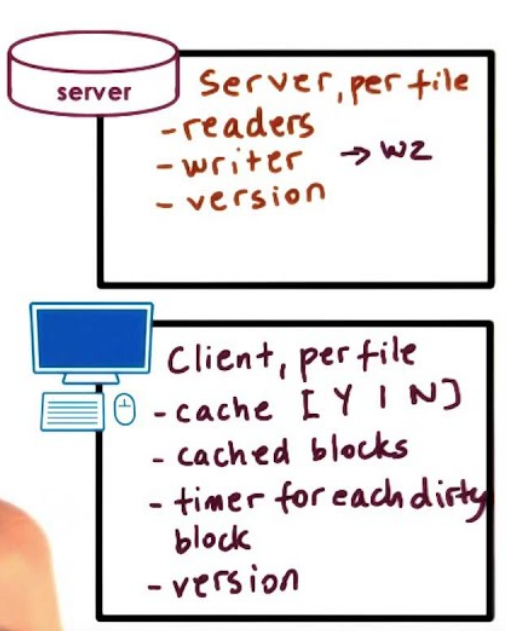 server
Server, per file
- readers
- writer → w2
- version
Client, per file
- cache [Y | N]
- cached blocks
- timer for each dirty
block
- version